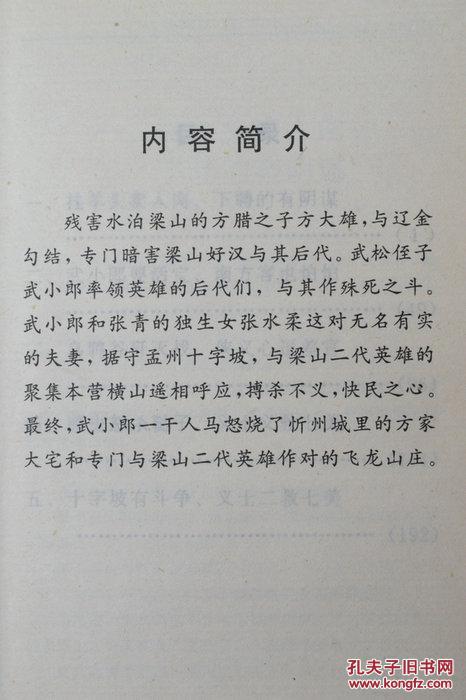 内容简介
残害水泊梁山的方腊之子方大雄，与辽金
勾结，专门暗害梁山好汉与其后代。武松侄子
武小郎率领英雄的后代们，与其作殊死之斗。
武小郎和张青的独生女张水柔这对无名有实
的夫妻，据守孟州十字坡，与梁山二代英雄的
聚集本营横山遥相呼应，搏杀不义，快民之心。
最终，武小郎一干人马怒烧了忻州城里的方家
大宅和专门与梁山二代英雄作对的飞龙山庄。
五、十字坡有斗争，义士二救七美
(192)
孔夫子旧书网
www.kongfz.com